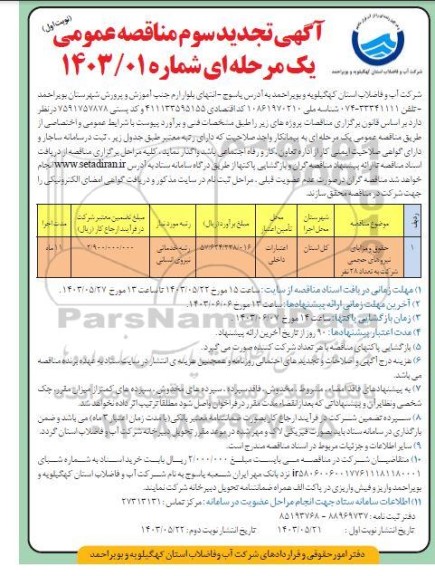 (نوبت اول)
آگهی تجدید سوم مناقصه عمومی
یک مرحله ای شماره ۱۴۰۳/۰۱
شرکت آب و فاضلاب استان کهگیلویه و بویراحمد
شرکت آب و فاضلاب استان کهگیلویه و بویراحمد به آدرس یاسوج - انتهای بلوار ارم جنب آموزش و پرورش شهرستان بویراحمد
- تلفن ۳۳۳۴۱۱۱۱-۰۷۴ شناسه ملی ۱۰۸۶۱۹۷۰۲۱۰ کد اقتصادی ۴۱۱۱۳۳۵۹۵۱۵۵ و کد پستی ۷۵۹۱۷۵۷۸۷۸ در نظر
دارد بر اساس قانون برگزاری مناقصات پروژه های زیر را طبق مشخصات فنی و برآورد پیوست با شرایط عمومی و اختصاصی از
طریق مناقصه عمومی یک مرحله ای به پیمانکار واجد صلاحیت که دارای رتبه معتبر طبق جدول زیر، ثبت در سامانه ساجار و
دارای گواهی صلاحیت ایمنی کار از اداره تعاون، کار و رفاه اجتماعی باشد واگذار نماید. کلیه مراحل برگزاری مناقصه از دریافت
اسناد مناقصه تا ارائه پیشنهاد مناقصه گران و بازگشایی پاکتها از طریق درگاه سامانه ستاد به آدرس www.setadiran.ir انجام
خواهد شد مناقصه گران در صورت عدم عضویت قبلی، مراحل ثبت نام در سایت مذکور و دریافت گواهی امضای الکترونیکی را
جهت شرکت در مناقصه محقق سازند.
ردیف موضوع مناقصه شهرستان محل اجرا محل تأمین اعتبار مبلغ برآورد (ریال) رتبه مورد نیاز مبلغ تضمین معتبر شرکت در فرآیند ارجاع کار (ریال) مدت اجرا
۱ حقوق و مزایای نیروهای حجمی شرکت به تعداد ۲۸ نفر کل استان اعتبارات داخلی ۵۷/۶۲۴/۳۳۸/۰۱۶ رتبه خدماتی نیروی انسانی ۲/۹۰۰/۰۰۰/۰۰۰ ۱۱ ماه
۱) مهلت زمانی دریافت اسناد مناقصه از سایت: ساعت ۱۵ مورخ ۱۴۰۳/۰۵/۲۲ تا ساعت ۱۳ مورخ ۱۴۰۳/۰۵/۲۷.
۲) آخرین مهلت زمانی ارائه پیشنهادها: ساعت ۱۳ مورخ ۱۴۰۳/۰۶/۰۶
۳) زمان بازگشایی پاکتها: ساعت ۱۴ مورخ ۱۴۰۳/۰۶/۰۷
۴) مدت اعتبار پیشنهادها: ۹۰ روز از تاریخ آخرین ارائه پیشنهاد.
۵) بازگشایی پاکتهای مناقصه با هر تعداد شرکت کننده صورت می گیرد.
۶) هزینه درج آگهی و اصلاحات و تجدید های احتمالی روزنامه و همچنین هزینه ی انتشار در سایت ستاد به عهده برنده مناقصه
می باشد.
۷) به پیشنهادهای فاقد امضاء، مشروط، مخدوش، فاقد سپرده، سپرده های مخدوش، سپرده های کمتر از میزان مقرر، چک
شخصی و نظایر آن و پیشنهاداتی که بعد از انقضاء مدت مقرر در فراخوان واصل شود مطلقاً ترتیب اثر داده نخواهد شد.
۸) سپرده تضمین شرکت در فرآیند ارجاع کار بصورت ضمانتنامه معتبر بانکی (با مدت زمان اعتبار ۳ ماه) می باشد و ضمن
بارگذاری در سامانه ستاد باید بصورت فیزیکی لاک و مهر شده در موعد مقرر تحویل دبیرخانه شرکت آب و فاضلاب استان گردد.
۹) سایر اطلاعات و جزئیات مربوط در اسناد مناقصه مندرج است.
۱۰) متقاضیان شرکت در مناقصه می بایست مبلغ ۲/۰۰۰/۰۰۰ ریال بابت خرید اسناد به شماره شبای
نزد بانک مهر ایران شعبه یاسوج به نام شرکت آب و فاضلاب استان کهگیلویه و
بویراحمد واریز و فیش واریزی در پاکت الف همراه ضمانتنامه تحویل دبیرخانه شرکت نمایند.
۱۱) اطلاعات سامانه ستاد جهت انجام مراحل عضویت در سامانه: مرکز تماس: ۲۷۳۱۳۱۳۱
دفتر ثبت نامه: ۸۸۹۶۹۷۳۷ - ۸۵۱۹۳۷۶۸
تاریخ انتشار نوبت اول: ۱۴۰۳/۰۵/۲۱ تاریخ انتشار نوبت دوم: ۱۴۰۳/۰۵/۲۲
دفتر امور حقوقی و قراردادهای شرکت آب و فاضلاب استان کهگیلویه و بویراحمد